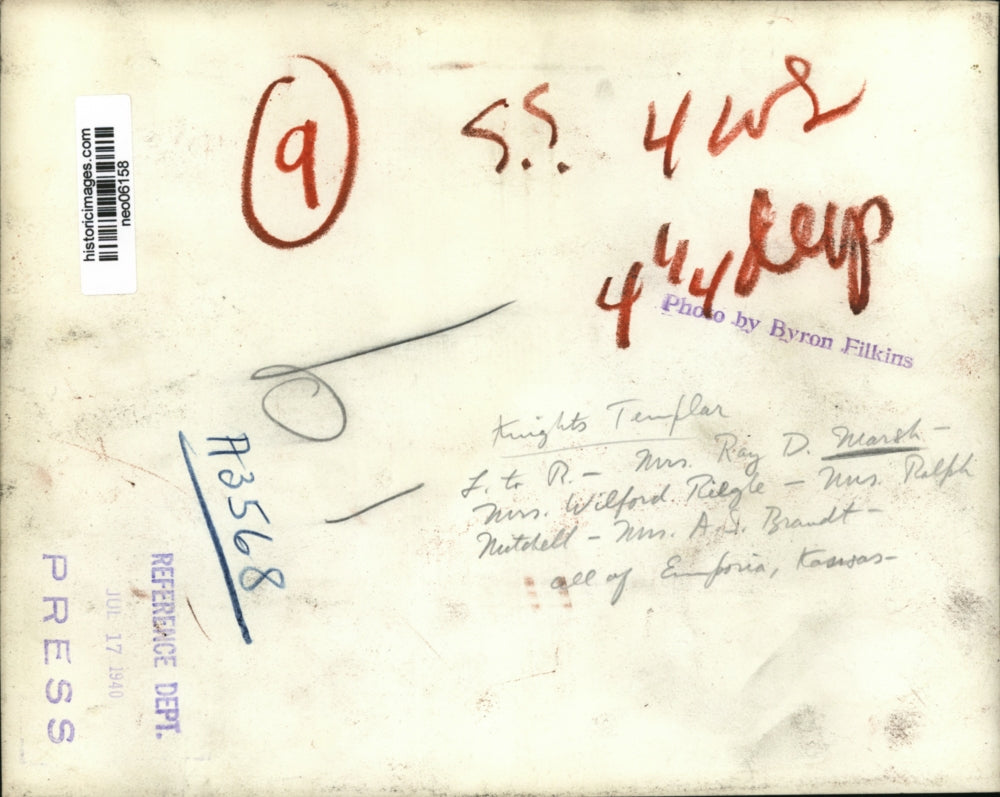 historicimages.com
neo06158
9
S.S.
4
4
4
Photo by Byron Filkins
Knights Templar
L. to R. - Mrs. Ray D. Marsh -
Mrs. Wilford Riegle - Mrs. Ralph
Mitchell - Mrs. A. J. Brandt -
all of Emporia, Kansas -
A3568
REFERENCE DEPT.
JUL 17 1940
PRESS